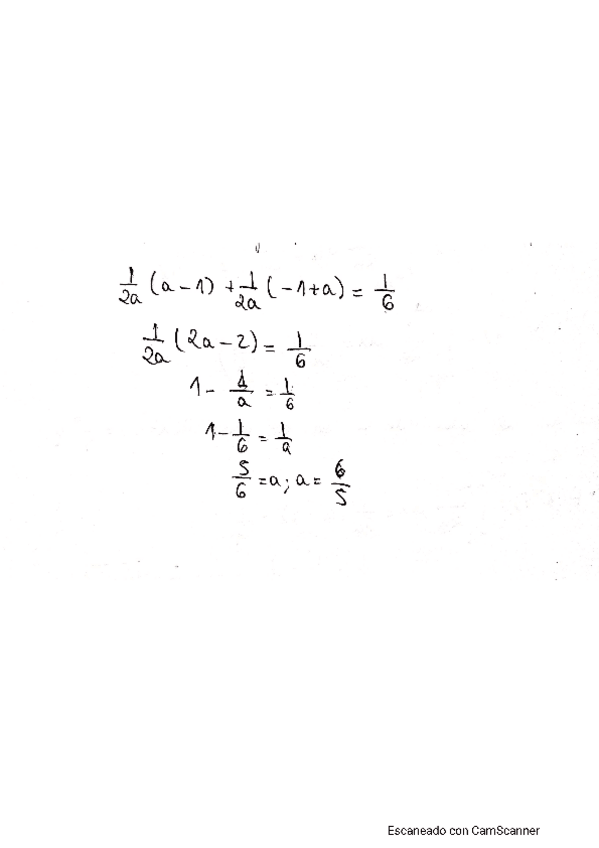 1/2a (a-1) + 1/2a (-1+a) = 1/6
1/2a (2a-2) = 1/6
1 - 1/a = 1/6
1 - 1/6 = 1/a
5/6 = a; a = 6/5
Escaneado con CamScanner